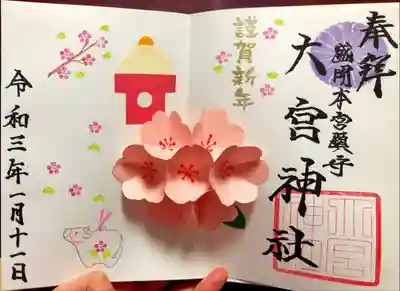 奉拝
盛岡本宮鎮守
大宮神社
謹賀新年
令和三年一月十一日